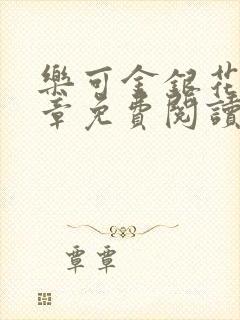 樂可金銀花
章免費閱讀
覃覃